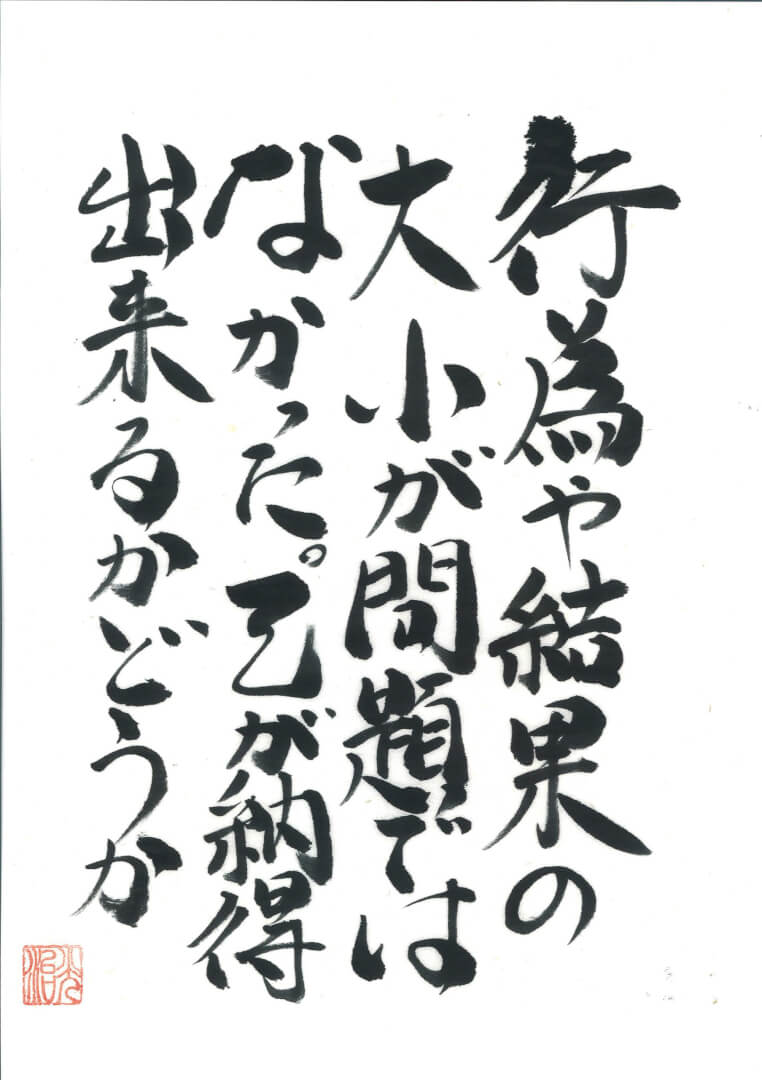 行為や結果の
大小が問題では
なかった。己が納得
出来るかどうか